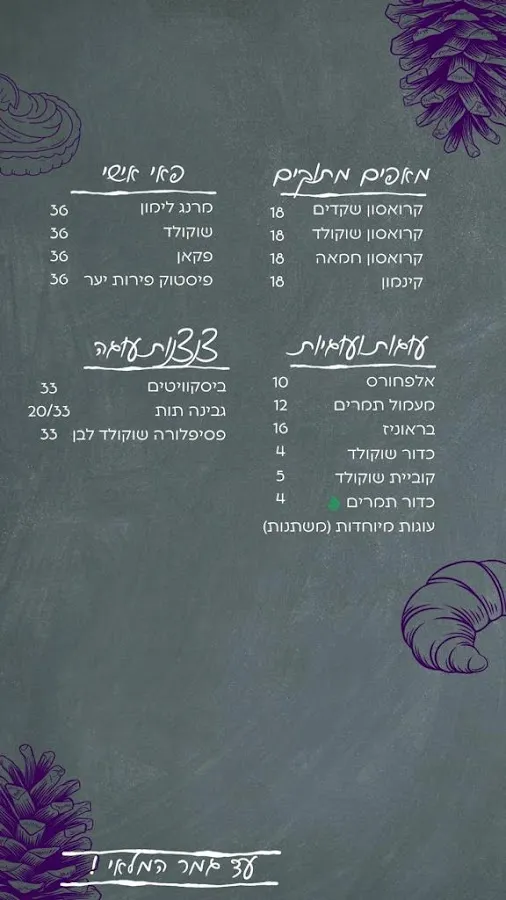 מאפים מתוקים
קרואסון שקדים 18
קרואסון שוקולד 18
קרואסון חמאה 18
קינמון 18
פאי אישי
מרנג לימון 36
שוקולד 36
פקאן 36
פיסטוק פירות יער 36
עוגות ועוגיות
אלפחורס 10
מעמול תמרים 12
בראוניז 16
כדור שוקולד 4
קוביית שוקולד 5
כדור תמרים 4
עוגות מיוחדות (משתנות)
צנצנות עוגה
ביסקוויטים 33
גבינה תות 20/33
פסיפלורה שוקולד לבן 33
עד גמר המלאי !